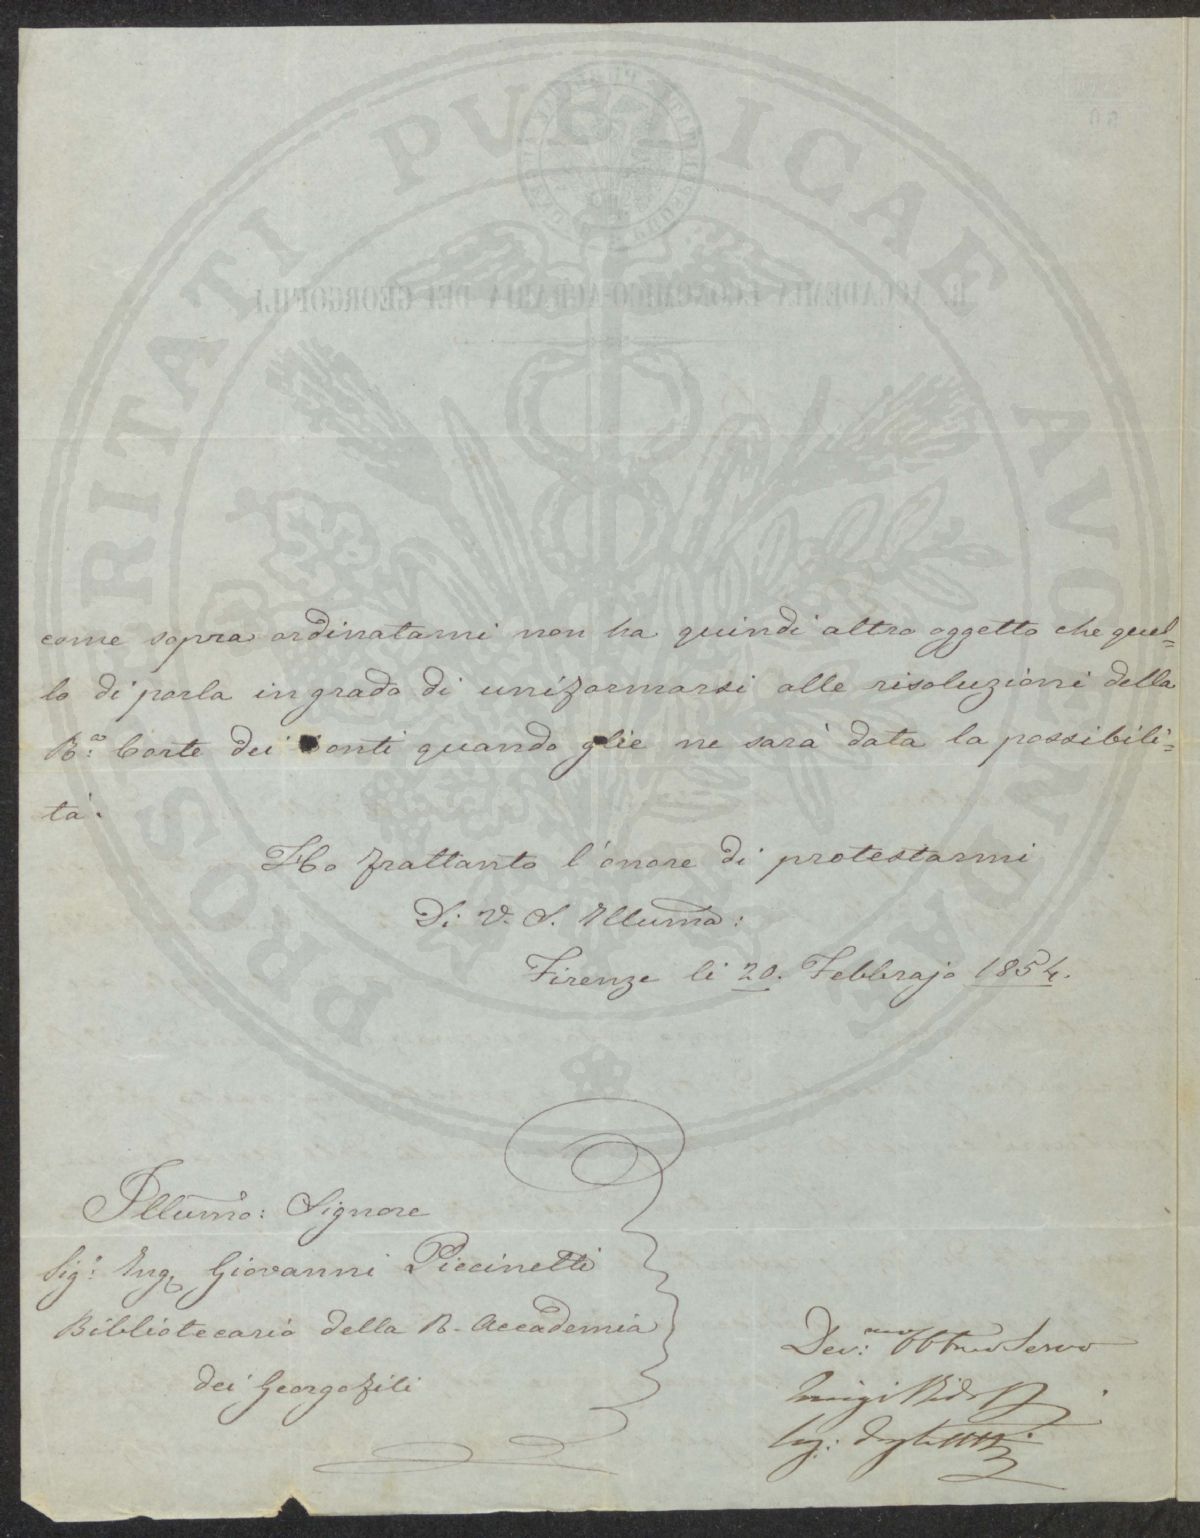 PROSPERITATI PUBLICAE AVGENDAE
R. ACCADEMIA ECONOMICO-AGRARIA DEI GEORGOFILI
come sopra ordinatami non ha quindi altro oggetto che quel=
lo di porla in grado di uniformarsi alle risoluzioni della
R.a Corte dei Conti quando glie ne sarà data la possibili=
tà.
Ho frattanto l'onore di protestarmi
Di V. S. Illuma:
Firenze li 20. Febbrajo 1854.
Illumo: Signore
Sig.e Ing. Giovanni Piccinetti
Bibliotecario della R. Accademia
dei Georgofili
Dev:mo Obbmo Servo
Luigi Ridolfi
Seg: degli Atti